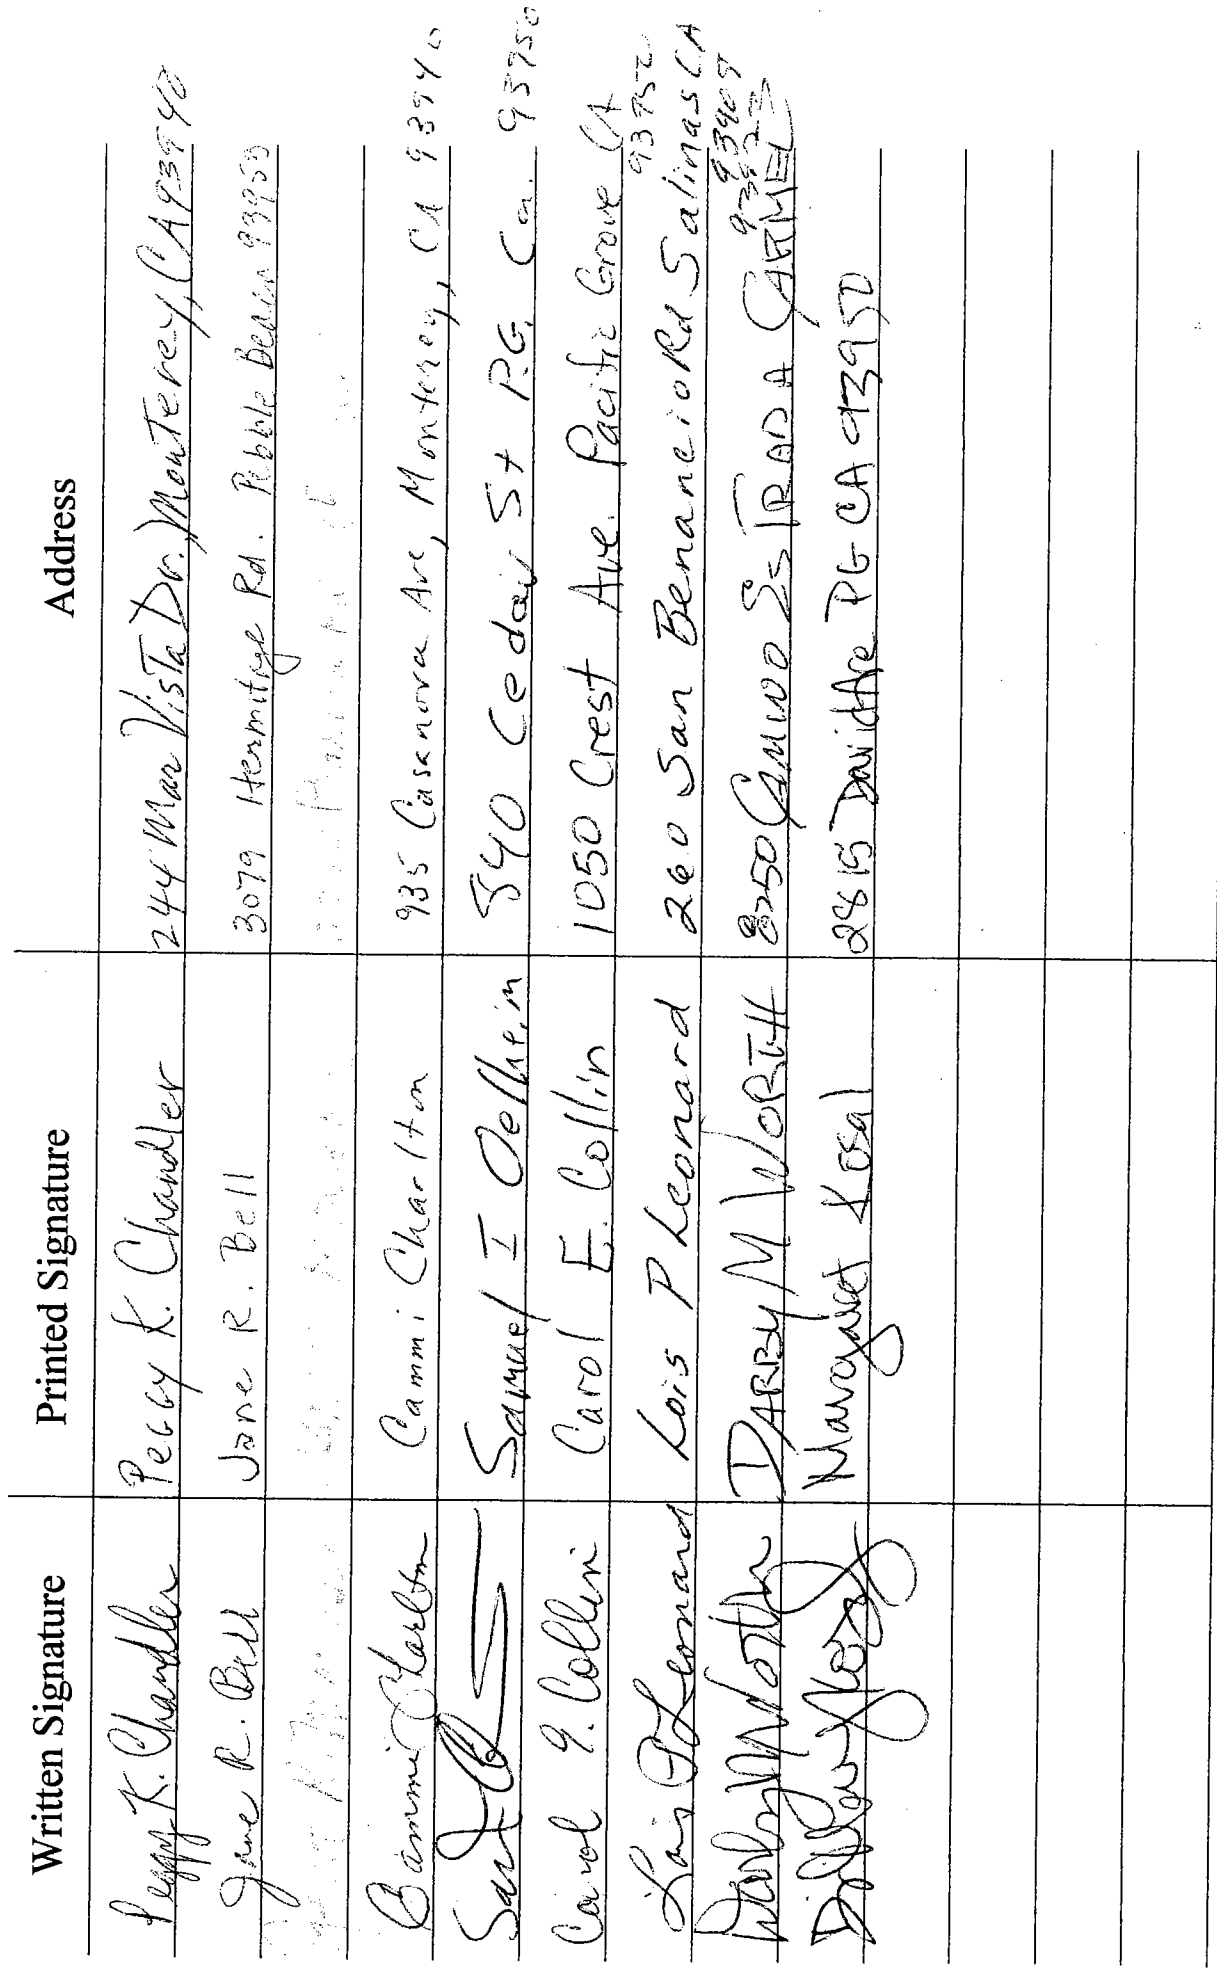 Written Signature Printed Signature Address
Peggy K. Chandler Peggy K. Chandler 244 Mar Vista Dr. Monterey, CA 93940
Jane R. Bell Jane R. Bell 3079 Hermitage Rd. Pebble Beach 93953
Cammi Charlton Cammi Charlton 935 Casanova Ave, Monterey, CA 93940
Samuel I Oelheim 840 Cedar St P.G. Ca. 93950
Carol E. Collin Carol E. Collin 1050 Crest Ave. Pacific Grove CA
93950
Lois P Leonard Lois P Leonard 260 San Benancio Rd Salinas CA
93908
Darby M Worth DARBY M WORTH CAMINO CARMEL
93923
Margaret Kosal David Ave PG CA 93950